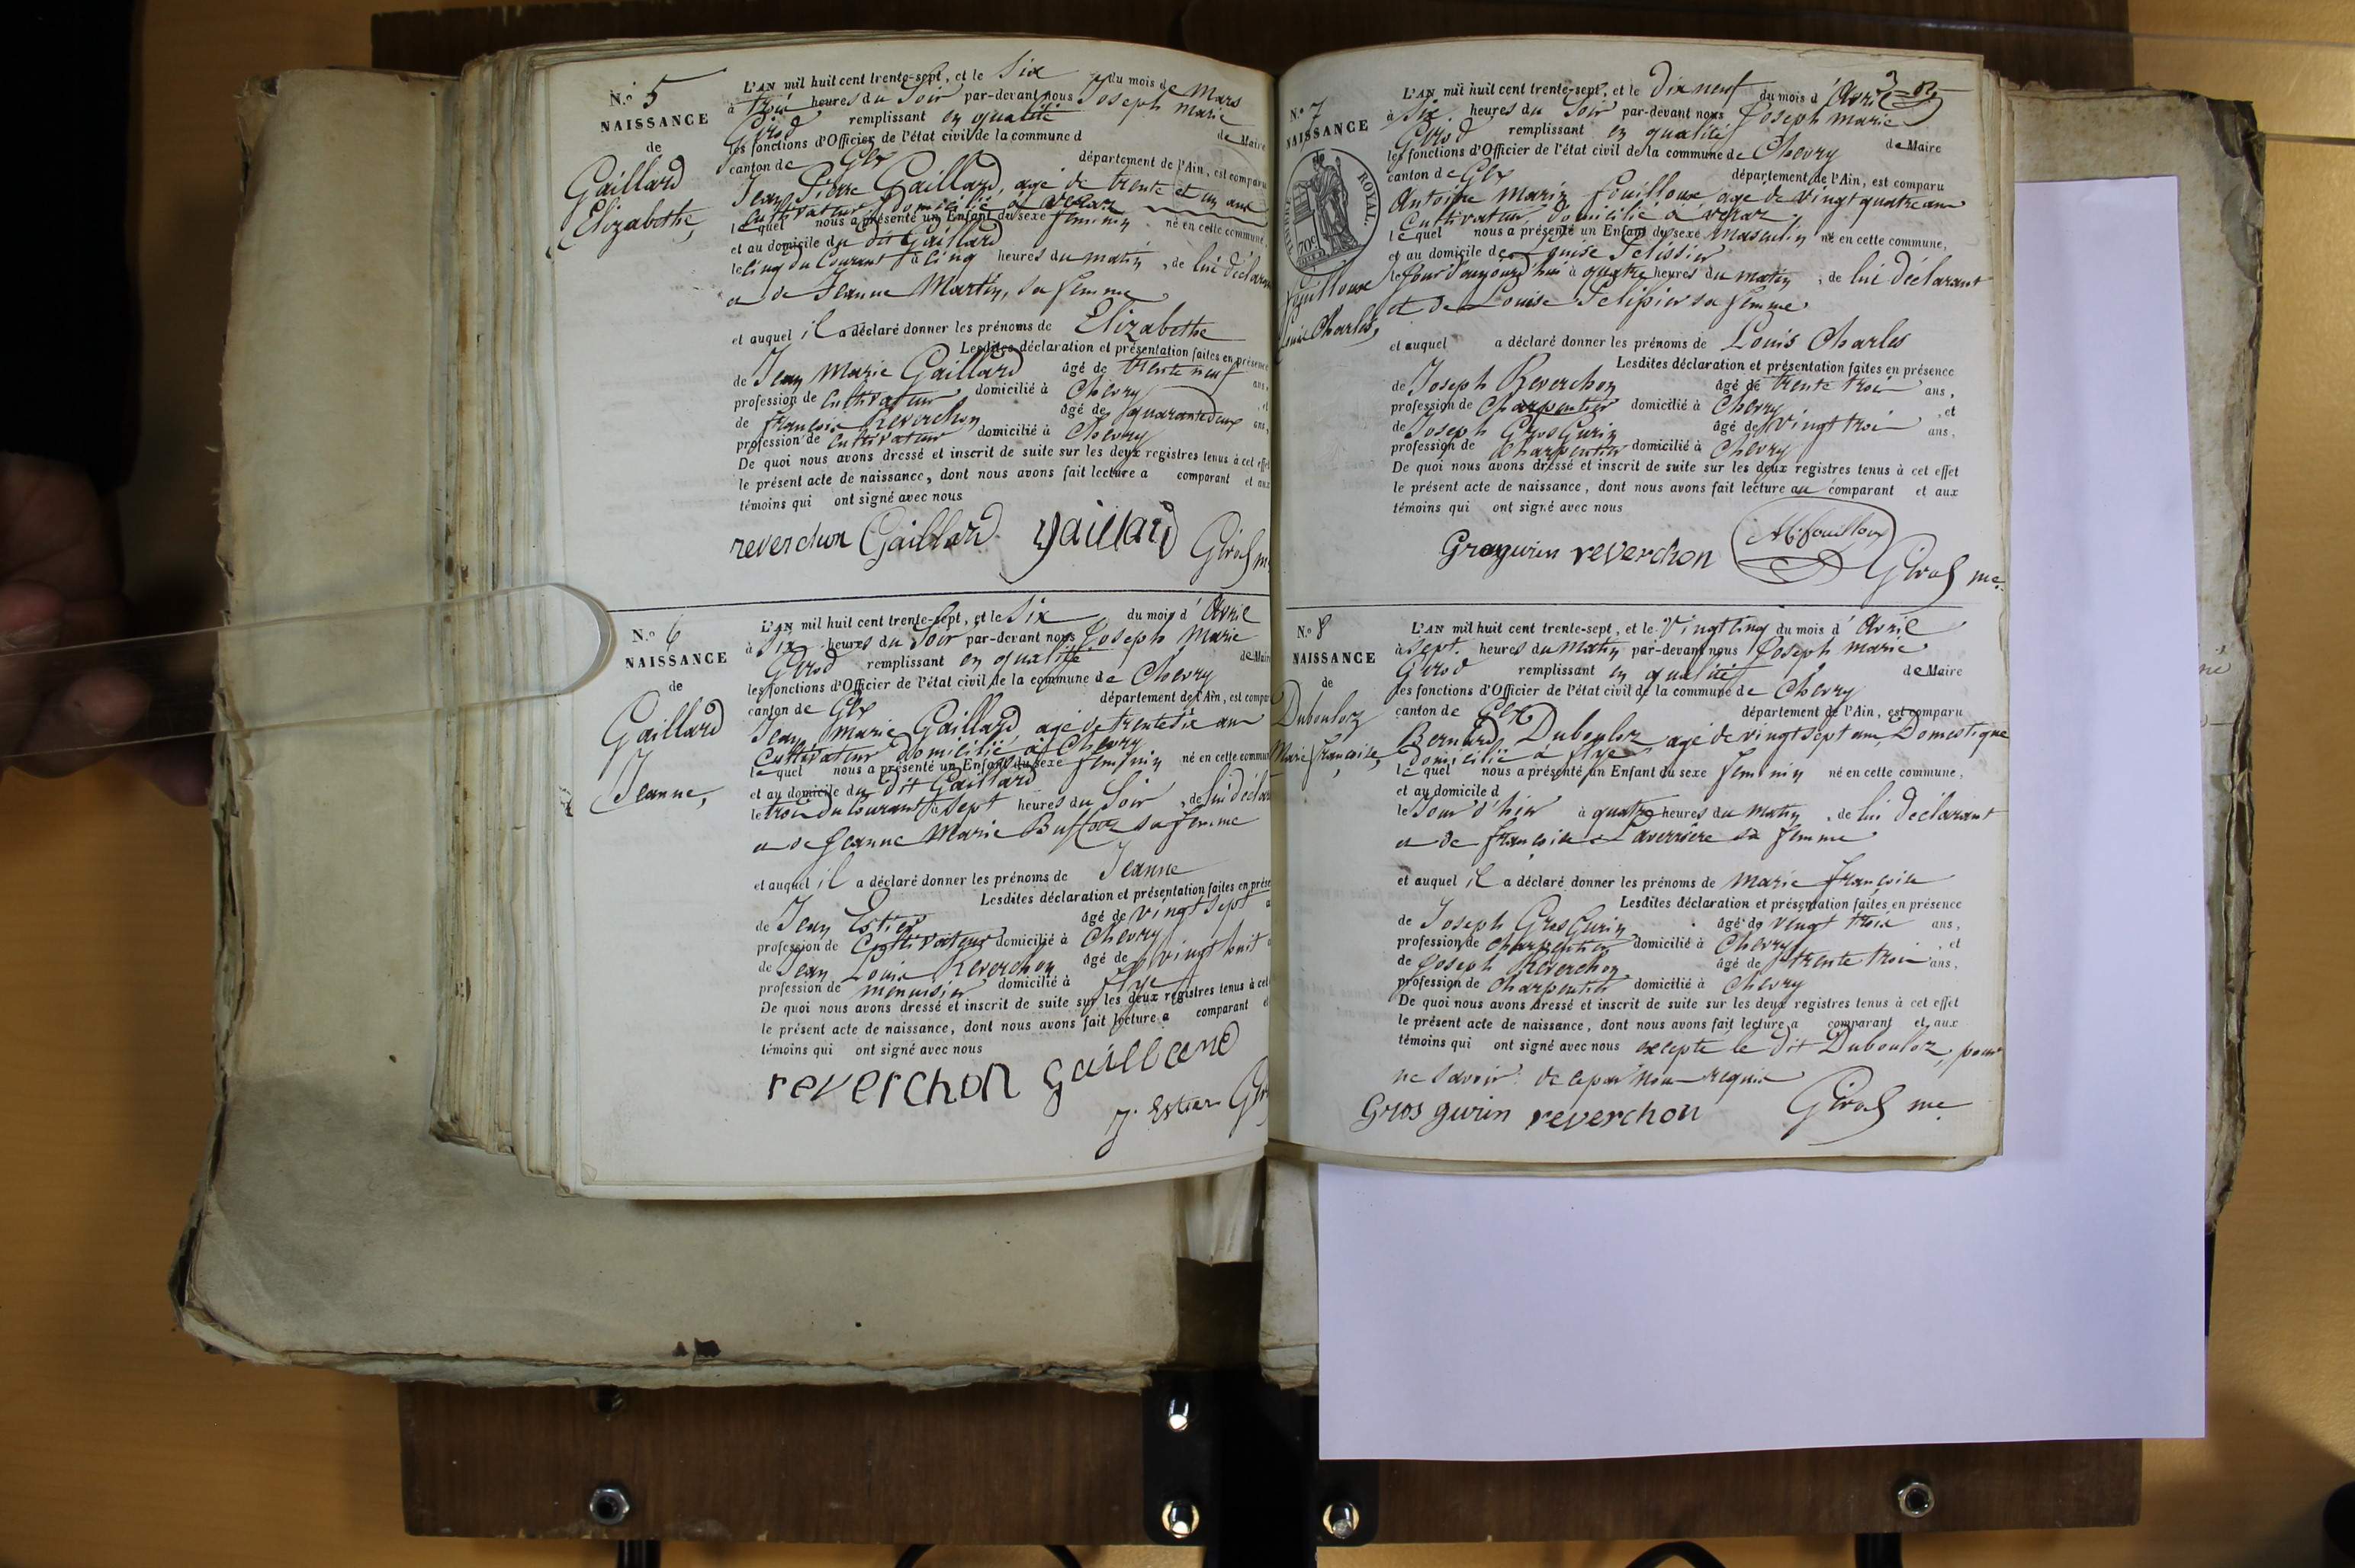 N.° 5
NAISSANCE
de
Gaillard
Elizabethe,
L'AN mil huit cent trente-sept, et le Six du mois de Mars
à trois heures du Soir par-devant nous Joseph Marie
Girod remplissant en qualité de Maire
les fonctions d'Officier de l'état civil de la commune d
canton de Gex département de l'Ain, est comparu
Jean Pierre Gaillard, agé de trente et un ans
Cultivateur domicilié à Veraz
lequel nous a présenté un Enfant du sexe feminin né en cette commune,
et au domicile du dit Gaillard
le cinq du Courant à cinq heures du matin, de lui déclarant
et de Jeanne Martin, sa femme
et auquel il a déclaré donner les prénoms de Elizabethe
Lesdites déclaration et présentation faites en présence
de Jean Marie Gaillard âgé de trente neuf ans,
profession de Cultivateur domicilié à Chevry, et
de françois Reverchon âgé de quarante deux ans,
profession de cultivateur domicilié à Chevry
De quoi nous avons dressé et inscrit de suite sur les deux registres tenus à cet effet
le présent acte de naissance, dont nous avons fait lecture a comparant et aux
témoins qui ont signé avec nous
reverchon Gaillard gaillard Girod m
N.° 6
NAISSANCE
de
Gaillard
Jeanne,
L'AN mil huit cent trente-sept, et le Six du mois d' Avril
à Six heures du Soir par-devant nous Joseph Marie
Girod remplissant en qualité de Maire
les fonctions d'Officier de l'état civil de la commune de Chevry
canton de Gex département de l'Ain, est compa
Jean Marie Gaillard agé de trente six ans
Cultivateur domicilié à Chevry
lequel nous a présenté un Enfant du sexe feminin né en cette commun
et au domicile du dit Gaillard
le trois du Courant à Sept heures du Soir, de lui déclar
et de Jeanne Marie Buffoz sa femme
et auquel il a déclaré donner les prénoms de Jeanne
Lesdites déclaration et présentation faites en prése
de Jean Estier âgé de vingt Sept a
profession de Cultivateur domicilié à Chevry
de Jean Louis Reverchon âgé de vingt huit
profession de menuisier domicilié à
De quoi nous avons dressé et inscrit de suite sur les deux registres tenus à cet
le présent acte de naissance, dont nous avons fait lecture a comparant e
témoins qui ont signé avec nous
reverchon gaillard
J. Estier Gir
3
N.° 7
NAISSANCE
de
ROYAL.
70c
fouilloux
Louis Charles,
L'AN mil huit cent trente-sept, et le Dix neuf du mois d' Avril
à Six heures du Soir par-devant nous Joseph Marie
Girod remplissant en qualité de Maire
les fonctions d'Officier de l'état civil de la commune de Chevry
canton de Gex département de l'Ain, est comparu
Antoine Marin fouilloux agé de vingt quatre ans
Cultivateur, domicilié à veraz,
lequel nous a présenté un Enfant du sexe masculin né en cette commune,
et au domicile de Louise Pelissier
le jour d'aujourd'hui à quatre heures du matin, de lui déclarant
et de Louise Pelissier sa femme
et auquel a déclaré donner les prénoms de Louis Charles
Lesdites déclaration et présentation faites en présence
de Joseph Reverchon âgé de trente trois ans,
profession de Charpentier domicilié à Chevry, et
de Joseph Gros Gurin âgé de vingt trois ans,
profession de Charpentier domicilié à Chevry
De quoi nous avons dressé et inscrit de suite sur les deux registres tenus à cet effet
le présent acte de naissance, dont nous avons fait lecture au comparant et aux
témoins qui ont signé avec nous
Grosgurin reverchon fouilloux Girod me.
N.° 8
NAISSANCE
de
Dubouloz
Marie françoise,
L'AN mil huit cent trente-sept, et le Vingt Cinq du mois d' Avril
à Sept heures du Matin par-devant nous Joseph Marie
Girod remplissant en qualité de Maire
les fonctions d'Officier de l'état civil de la commune de Chevry
canton de Gex département de l'Ain, est comparu
Bernard Dubouloz agé de vingt sept ans, Domestique
domicilié à
lequel nous a présenté un Enfant du sexe feminin né en cette commune,
et au domicile d
le Jour d'hier à quatre heures du Matin, de lui déclarant
et de françoise Laverrière sa femme
et auquel il a déclaré donner les prénoms de Marie françoise
Lesdites déclaration et présentation faites en présence
de Joseph Gros Gurin âgé de vingt trois ans,
profession de charpentier domicilié à Chevry, et
de Joseph Reverchon âgé de trente trois ans,
profession de charpentier domicilié à Chevry
De quoi nous avons dressé et inscrit de suite sur les deux registres tenus à cet effet
le présent acte de naissance, dont nous avons fait lecture a comparant et aux
témoins qui ont signé avec nous excepté le dit Dubouloz, pour
ne Savoir de ce par nous requis
Gros gurin reverchon Girod me